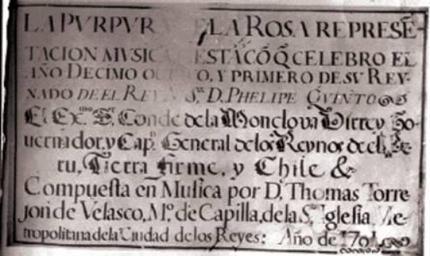 LA PVRPVR LA ROSA REPRESĒ
TACION MVSIC FIESTA CŌ Q̄ CELEBRO EL
AÑO DECIMO O O, Y PRIMERO DE SV REY-
NADO DE EL REY Sr. D. PHELIPE QVINTO
El Exmo. Sr. Conde de la Monclova Virrey Go
uernador, y Capn. General de los Reynos de el Pe
ru, Tierra firme, y Chile &
Compuesta en Musica por D. Thomas Torre
jon de Velasco, Mo. de Capilla, de la Sta. Iglesia Me
tropolitana de la Ciudad de los Reyes: Año de 1701